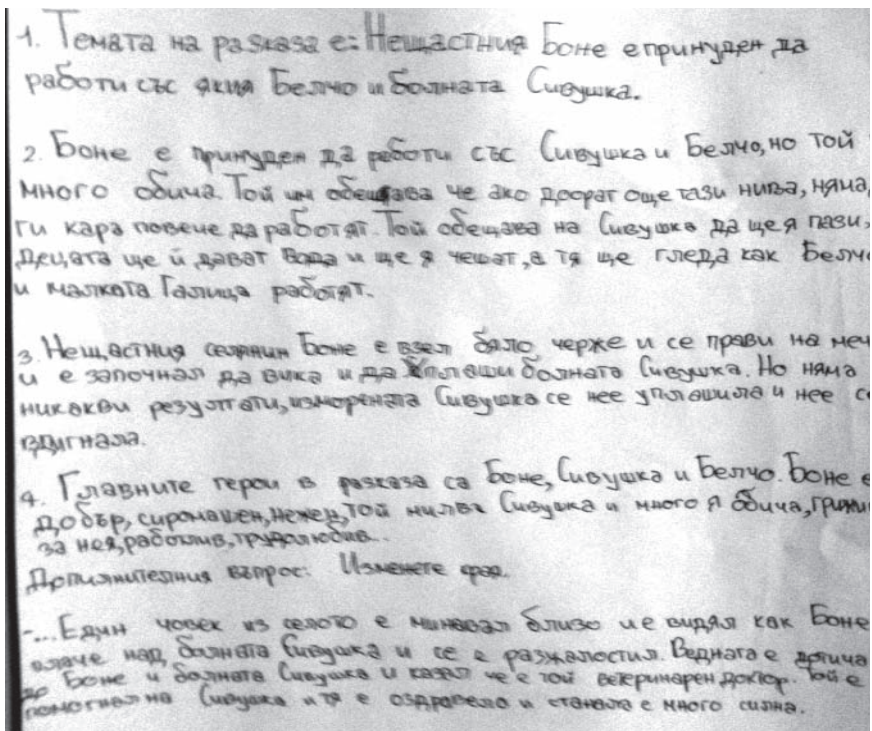 1. Темата на разказа е: Нещастния Боне е принуден да
работи със якия Белчо и болната Сивушка.
2. Боне е принуден да работи със Сивушка и Белчо, но той
много обича. Той им обещава че ако доорат още тази нива, няма
ги кара повече да работят. Той обещава на Сивушка да ще я пази,
децата ще й дават вода и ще я чешат, а тя ще гледа как Белчо
и малката Галица работят.
3. Нещастния селянин Боне е взел бяло черже и се прави на меч
и е започнал да вика и да плаши болната Сивушка. Но няма
никакви резултати, изморената Сивушка се нее уплашила и нее се
вдигнала.
4. Главните герои в разказа са Боне, Сивушка и Белчо. Боне е
добър, сиромашен, нежен, той милва Сивушка и много я обича, грижи
за нея, работлив, трудолюбив..
Допилнителния въпрос: Изменете края.
-... Един човек из селото е минавал близо и е видял как Боне
плаче над болната Сивушка и се е разжалостил. Веднага е дотича
до Боне и болната Сивушка и казал че е той ветеринарен доктор. Той е
помогнал на Сивушка и тя е оздравело и станала е много силна.